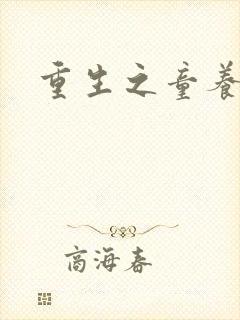 重生之童养
商海春